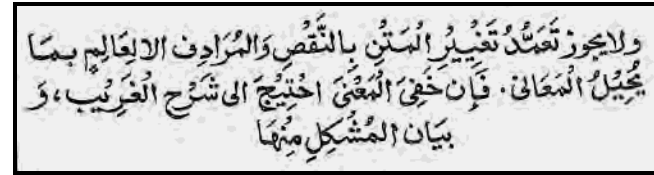 ولايجوز تَعَمُّدُ تَغْيِيْرِ الْمَتْنِ بِالنَّقْصِ وَالمُرَادِفِ الالِعَالِمٍ بِمَا
يُحِيْلُ الْمَعَانىَ. فَاِن خَفِىَ الْمَعْنىَ احْتِيْجَ الى شَرْحِ الْغَرِيْبِ، وَ
بيَان المُشْكِلِ مِنْهَا